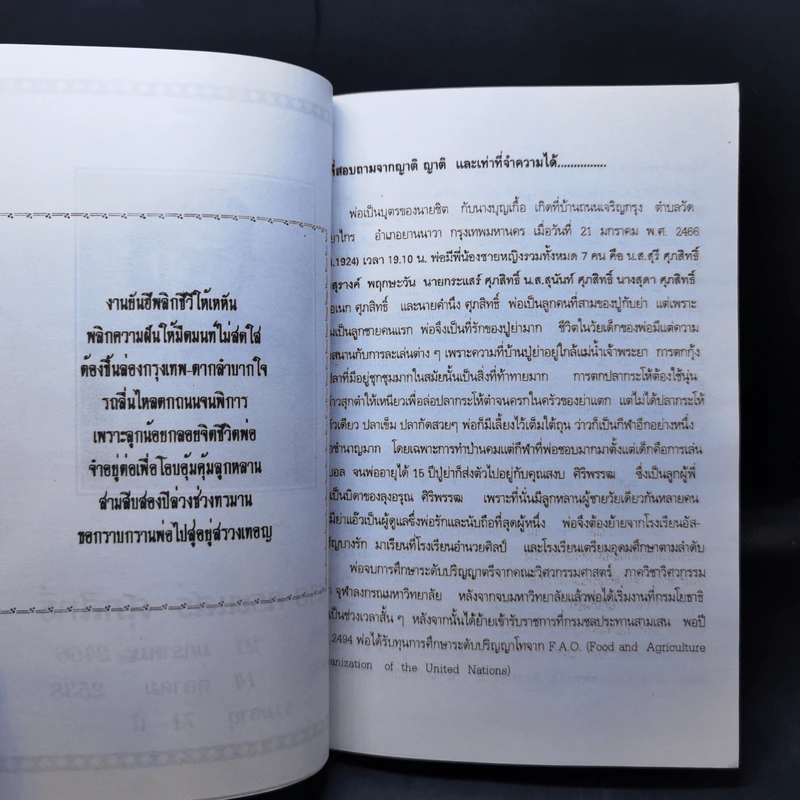 งานยันฮีพลิกชีวีให้เหหัน
พลิกความฝันให้มืดมนท์ไม่สดใส
ต้องขึ้นล่องกรุงเทพ-ตากลำบากใจ
รถลื่นไหลตกถนนจนพิการ
เพราะลูกน้อยกลอยจิตชีวิตพ่อ
จำอยู่ต่อเพื่อโอบอุ้มคุ้มลูกหลาน
สามสิบสองปีล่วงช่วงทรมาน
ขอกราบกรานพ่อไปสู่อยู่สรวงเทอญ
สอบถามจากญาติ ญาติ และเท่าที่จำความได้..............
พ่อเป็นบุตรของนายชิต กับนางบุญเกื้อ เกิดที่บ้านถนนเจริญกรุง ตำบลวัด
ยาไกร อำเภอยานนาวา กรุงเทพมหานคร เมื่อวันที่ 21 มกราคม พ.ศ. 2466
.1924) เวลา 19.10 น. พ่อมีพี่น้องชายหญิงรวมทั้งหมด 7 คน คือ น.ส.สุรี ศุภสิทธิ์
สุรางค์ พฤกษะวัน นายกระแสร์ ศุภสิทธิ์ น.ส.สุนันท์ ศุภสิทธิ์ นางสุดา ศุภสิทธิ์
อเนก ศุภสิทธิ์ และนายคำนึง ศุภสิทธิ์ พ่อเป็นลูกคนที่สามของปู่กับย่า แต่เพราะ
เป็นลูกชายคนแรก พ่อจึงเป็นที่รักของปู่ย่ามาก ชีวิตในวัยเด็กของพ่อมีแต่ความ
สนานกับการละเล่นต่าง ๆ เพราะความที่บ้านปู่ย่าอยู่ใกล้แม่น้ำเจ้าพระยา การตกกุ้ง
ปลาที่มีอยู่ชุกชุมมากในสมัยนั้นเป็นสิ่งที่ท้าทายมาก การตกปลากระโห้ต้องใช้นุ่น
าวสุกตำให้เหนียวเพื่อล่อปลากระโห้ตำจนครกในครัวของย่าแตก แต่ไม่ได้ปลากระโห้
ัวเดียว ปลาเข็ม ปลากัดสวยๆ พ่อก็มีเลี้ยงไว้เต็มใต้ถุน ว่าวก็เป็นกีฬาอีกอย่างหนึ่ง
อชำนาญมาก โดยเฉพาะการทำป่านคมแต่กีฬาที่พ่อชอบมากมาตั้งแต่เด็กคือการเล่น
บอล จนพ่ออายุได้ 15 ปีปู่ย่าก็ส่งตัวไปอยู่กับคุณสงบ ศิริพรรฒ ซึ่งเป็นลูกผู้พี่
ะเป็นบิดาของลุงอรุณ ศิริพรรฒ เพราะที่นั่นมีลูกหลานผู้ชายวัยเดียวกันหลายคน
มีย่าแอ๊วเป็นผู้ดูแลซึ่งพ่อรักและนับถือที่สุดผู้หนึ่ง พ่อจึงต้องย้ายจากโรงเรียนอัส-
ัญบางรัก มาเรียนที่โรงเรียนอำนวยศิลป์ และโรงเรียนเตรียมอุดมศึกษาตามลำดับ
พ่อจบการศึกษาระดับปริญญาตรีจากคณะวิศวกรรมศาสตร์ ภาควิชาวิศวกรรม
จุฬาลงกรณมหาวิทยาลัย หลังจากจบมหาวิทยาลัยแล้วพ่อได้เริ่มงานที่กรมโยธาธิ
เป็นช่วงเวลาสั้น ๆ หลังจากนั้นได้ย้ายเข้ารับราชการที่กรมชลประทานสามเสน พอปี
.2494 พ่อได้รับทุนการศึกษาระดับปริญญาโทจาก F.A.O. (Food and Agriculture
anization of the United Nations)